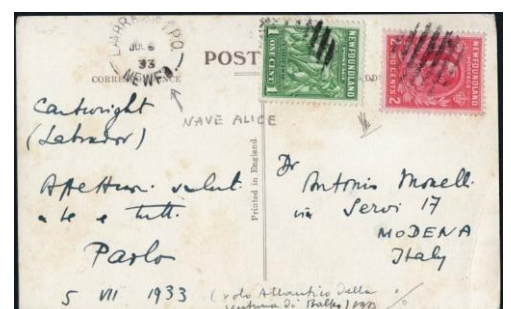 P.O.
33
NEWF'D
POST
NEWFOUNDLAND
1 ONE CENT 1
NEWFOUNDLAND
2 TWO CENTS 2
NAVE ALICE
Printed in England.
Cartwright
(Labrador)
Affettuosi saluti
a te e tutti.
Paolo
5 VII 1933
Dr Antonio Monelli
via Servi 17
MODENA
Italy
(volo Atlantico della
centuria di Balbo) 1933